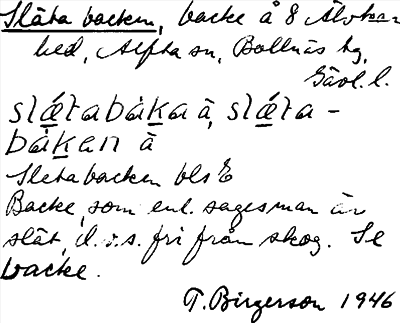 Släta backen, backe å 8 Älvkar-
hed, Alfta sn, Bollnäs tg,
Gävl. l.
slǽtabàka à, slǽta -
bàkan à
Sletabacken bls E
Backe, som enl. sagesman är
slät, d.v.s. fri från skog. Se
backe.
T. Birgerson 1946